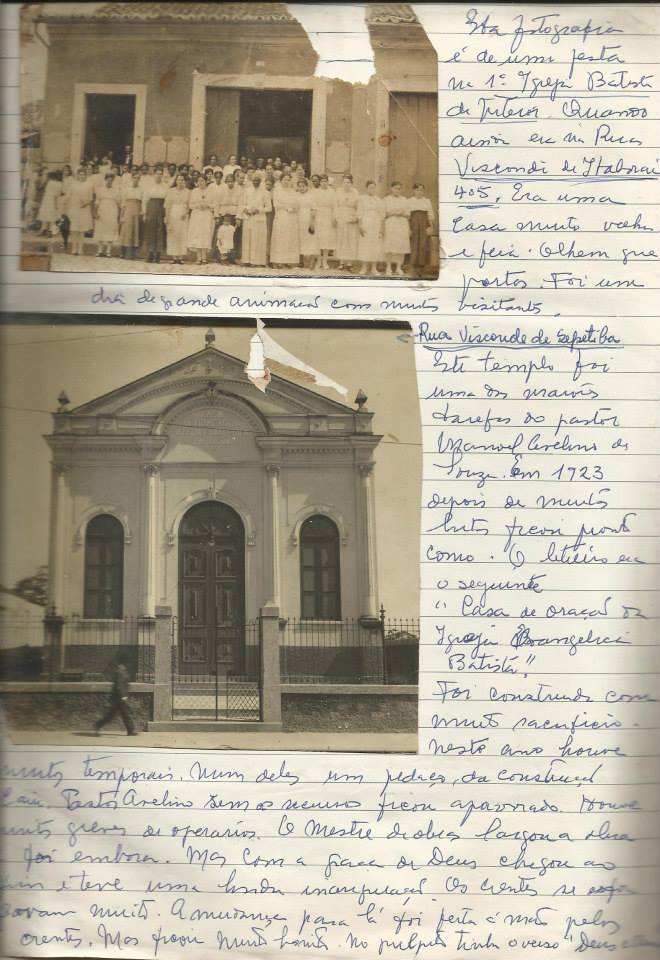 Esta fotografia
é de uma festa
na 1ª Igreja Batista
de Niteroi. Quando
ainda era na Rua
Visconde de Itaborai
405. Era uma
casa muito velha
e feia. Olhem que
portas. Foi um
dia de grande animação com muitos visitantes.
Rua Visconde de Sepetiba
Este templo foi
uma das maiores
tarefas do pastor
Manoel Avelino de
Souza. Em 1923
depois de muitas
lutas ficou pronto
como. O letreiro era
o seguinte
" Casa de oração da
Igreja Evangelica
Batista".
Foi construida com
muito sacrificio.
neste ano houve
muitos temporais. Num deles um pedaço da construção
caiu. Pastor Avelino sem os recursos ficou apavorado. Houve
muitas greves de operarios. O Mestre de obras largou a obra
e foi embora. Mas com a graça de Deus chegou ao
fim e teve uma linda inauguração. Os crentes se
muito. A mudança para lá foi feita á mão pelos
crentes. Mas ficou muito bonita. No pulpito tinha o verso "Deus